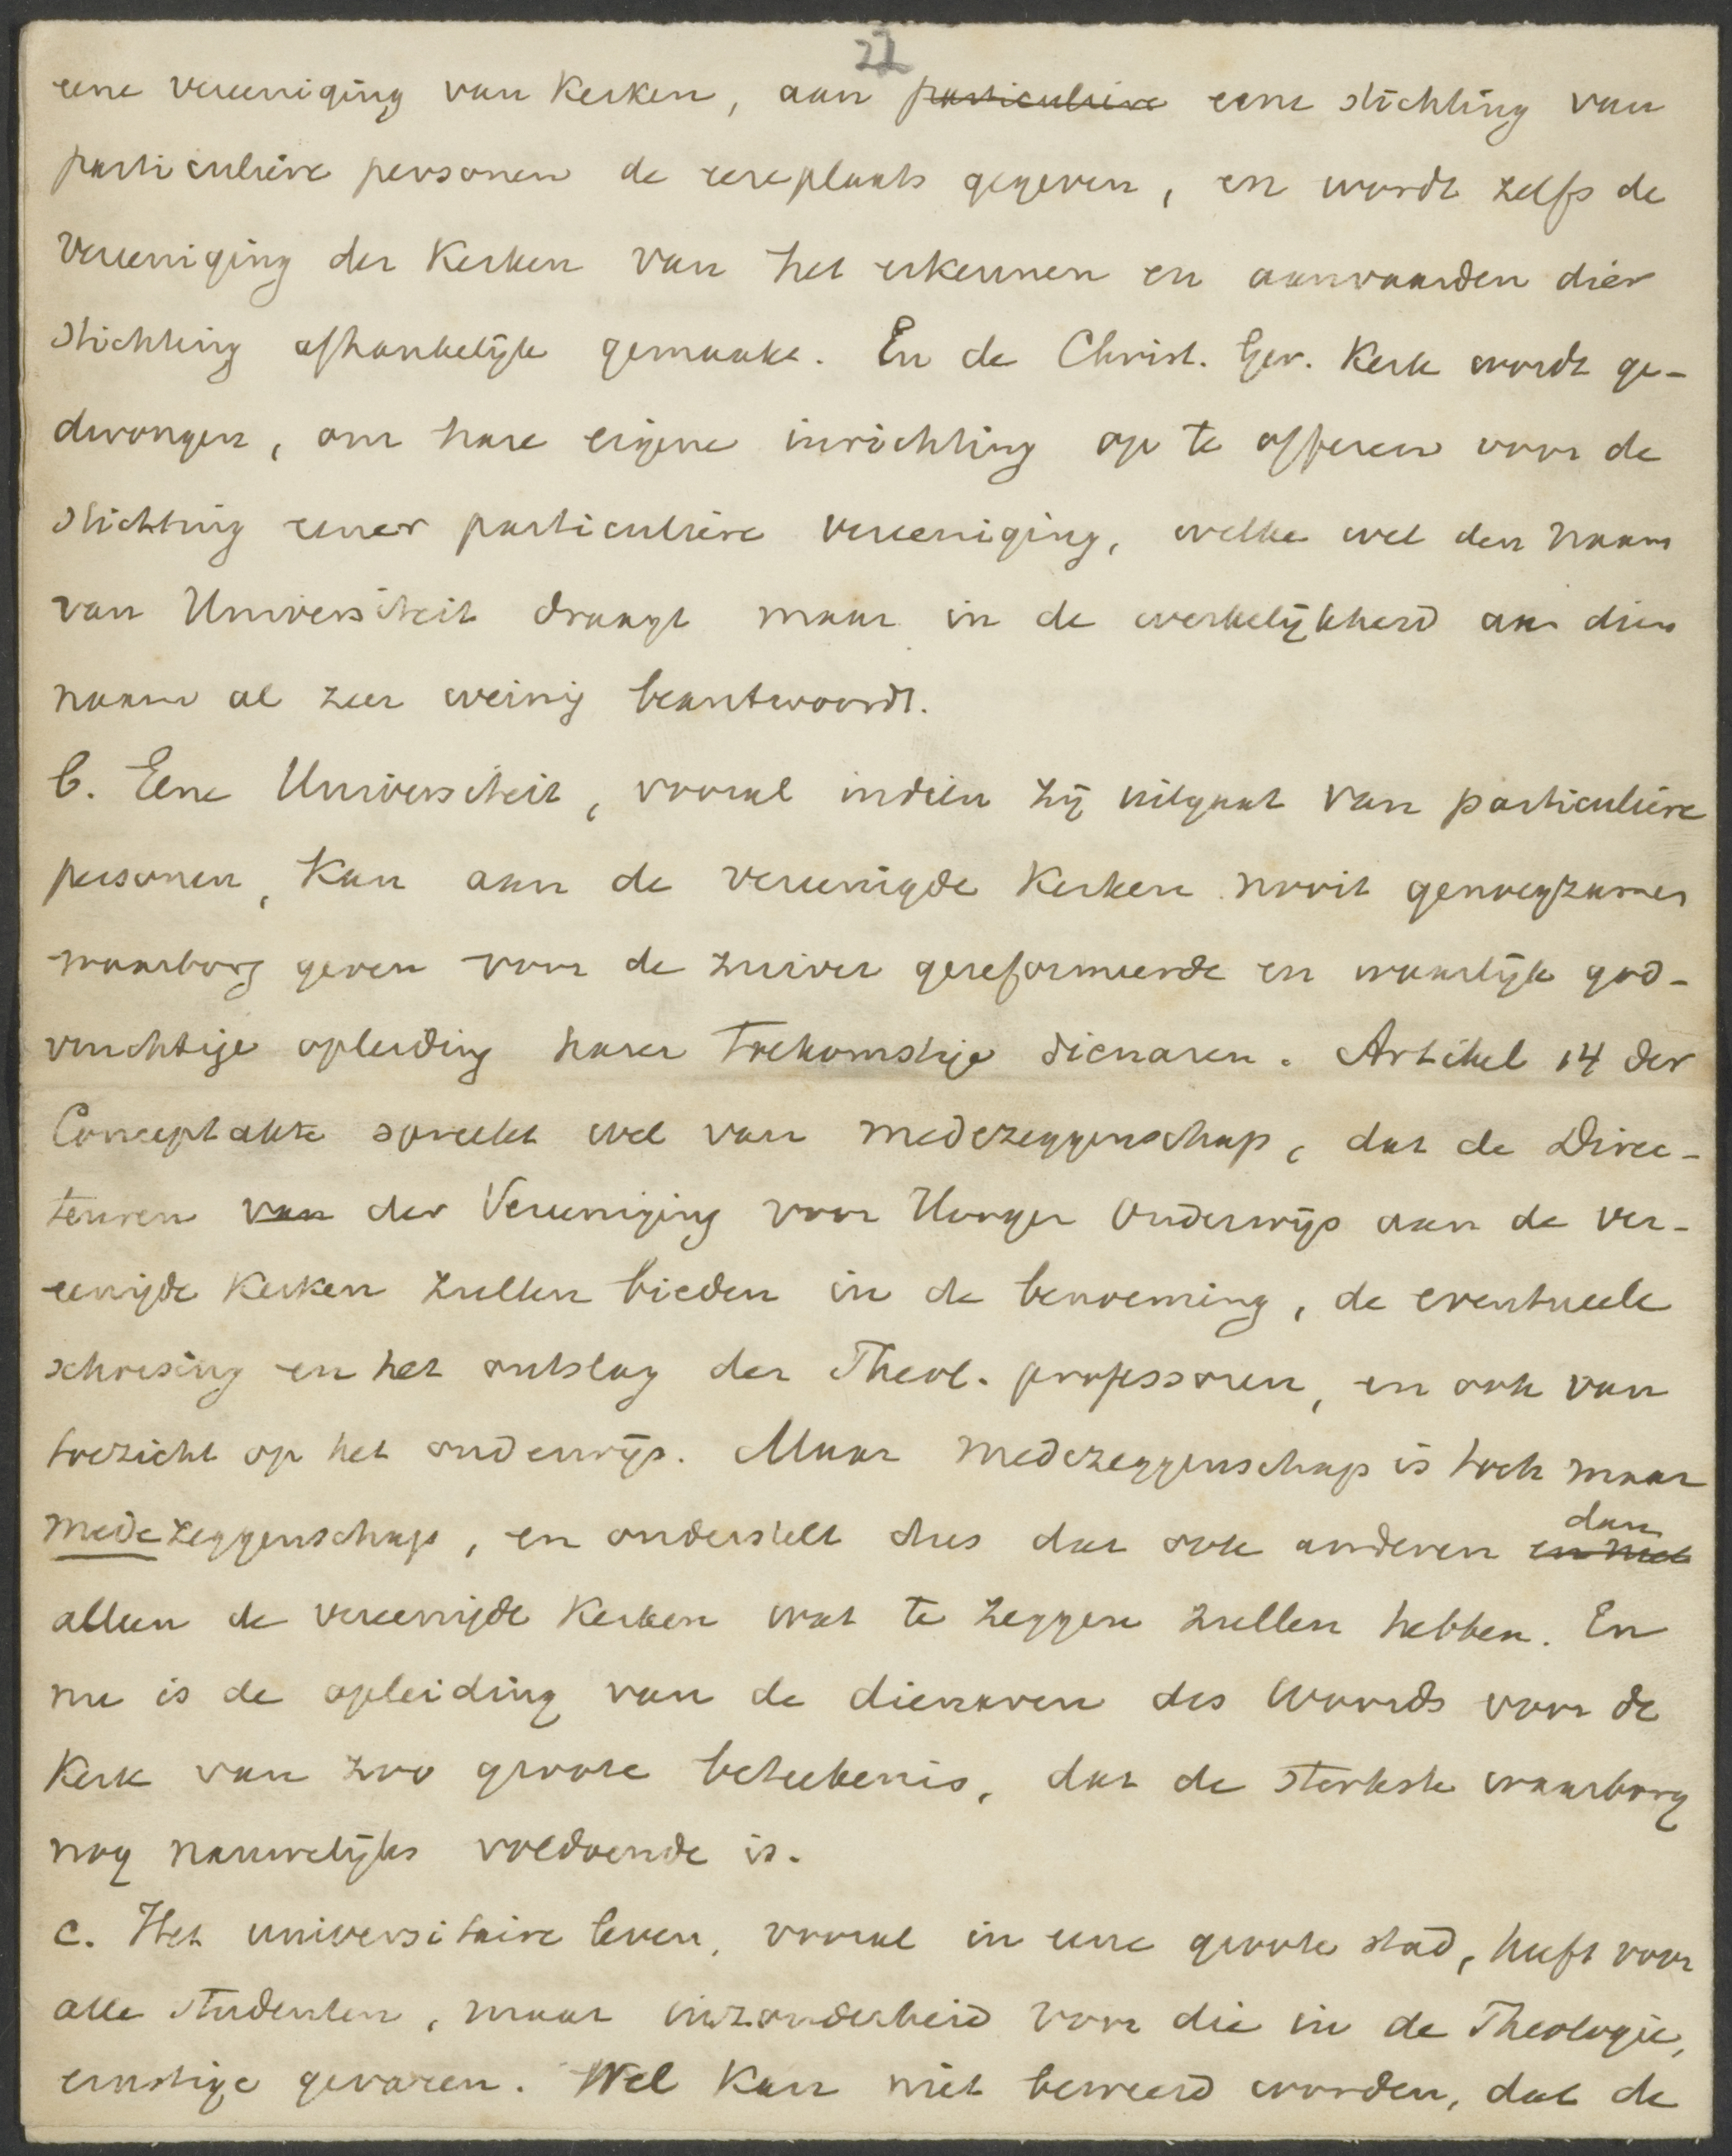 22
eene vereeniging van Kerken, aan particuliere eene stichting van
particuliere personen de eereplaats gegeven, en wordt zelfs de
Vereeniging der Kerken van het erkennen en aanvaarden dier
Stichting afhankelijk gemaakt. En de Christ. Ger. Kerk wordt ge-
dwongen, om hare eigene inrichting op te offeren voor de
Stichting eener particuliere vereeniging, welke wel den naam
van Universiteit draagt maar in de werkelijkheid aan dien
naam al zeer weinig beantwoordt.
b. Eene Universiteit, vooral indien zij uitgaat van particuliere
personen, kan aan de vereenigde Kerken nooit genoegzamen
waarborg geven voor de zuiver gereformeerde en waarlijk god-
vruchtige opleiding harer toekomstige dienaren. Artikel 14 der
Conceptakte spreekt wel van medezeggenschap, dat de Direc-
teuren van der Vereeniging voor Hooger Onderwijs aan de ver-
eenigde Kerken zullen bieden in de benoeming, de eventueele
schorsing en het ontslag der Theol. professoren, en ook van
toezicht op het onderwijs. Maar medezeggenschap is toch maar
medezeggenschap, en onderstelt dus dat ook anderen en niet dan
alleen de vereenigde Kerken wat te zeggen zullen hebben. En
nu is de opleiding van de dienaren des Woords voor de
Kerk van zoo groote beteekenis, dat de sterkste waarborg
nog nauwelijks voldoende is.
c. Het universitaire leven, vooral in eene groote stad, heeft voor
alle studenten, maar inzonderheid voor die in de Theologie,
ernstige gevaren. Wel kan niet beweerd worden, dat de